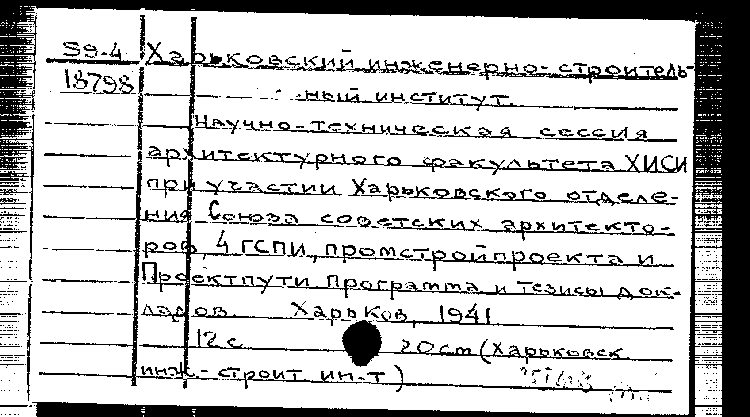 59-4 Харьковский инженерно-строитель-
18798 ный институт.
Научно-техническая сессия
архитектурного факультета ХИСИ
при участии Харьковского отделе-
ния Союза советских архитекто-
ров, 4 ГСПИ, промстройпроекта и
Проектпути Программа и тезисы док-
ладов. Харьков, 1941
12 с 20 cm (Харьковск
инж-строит ин-т)